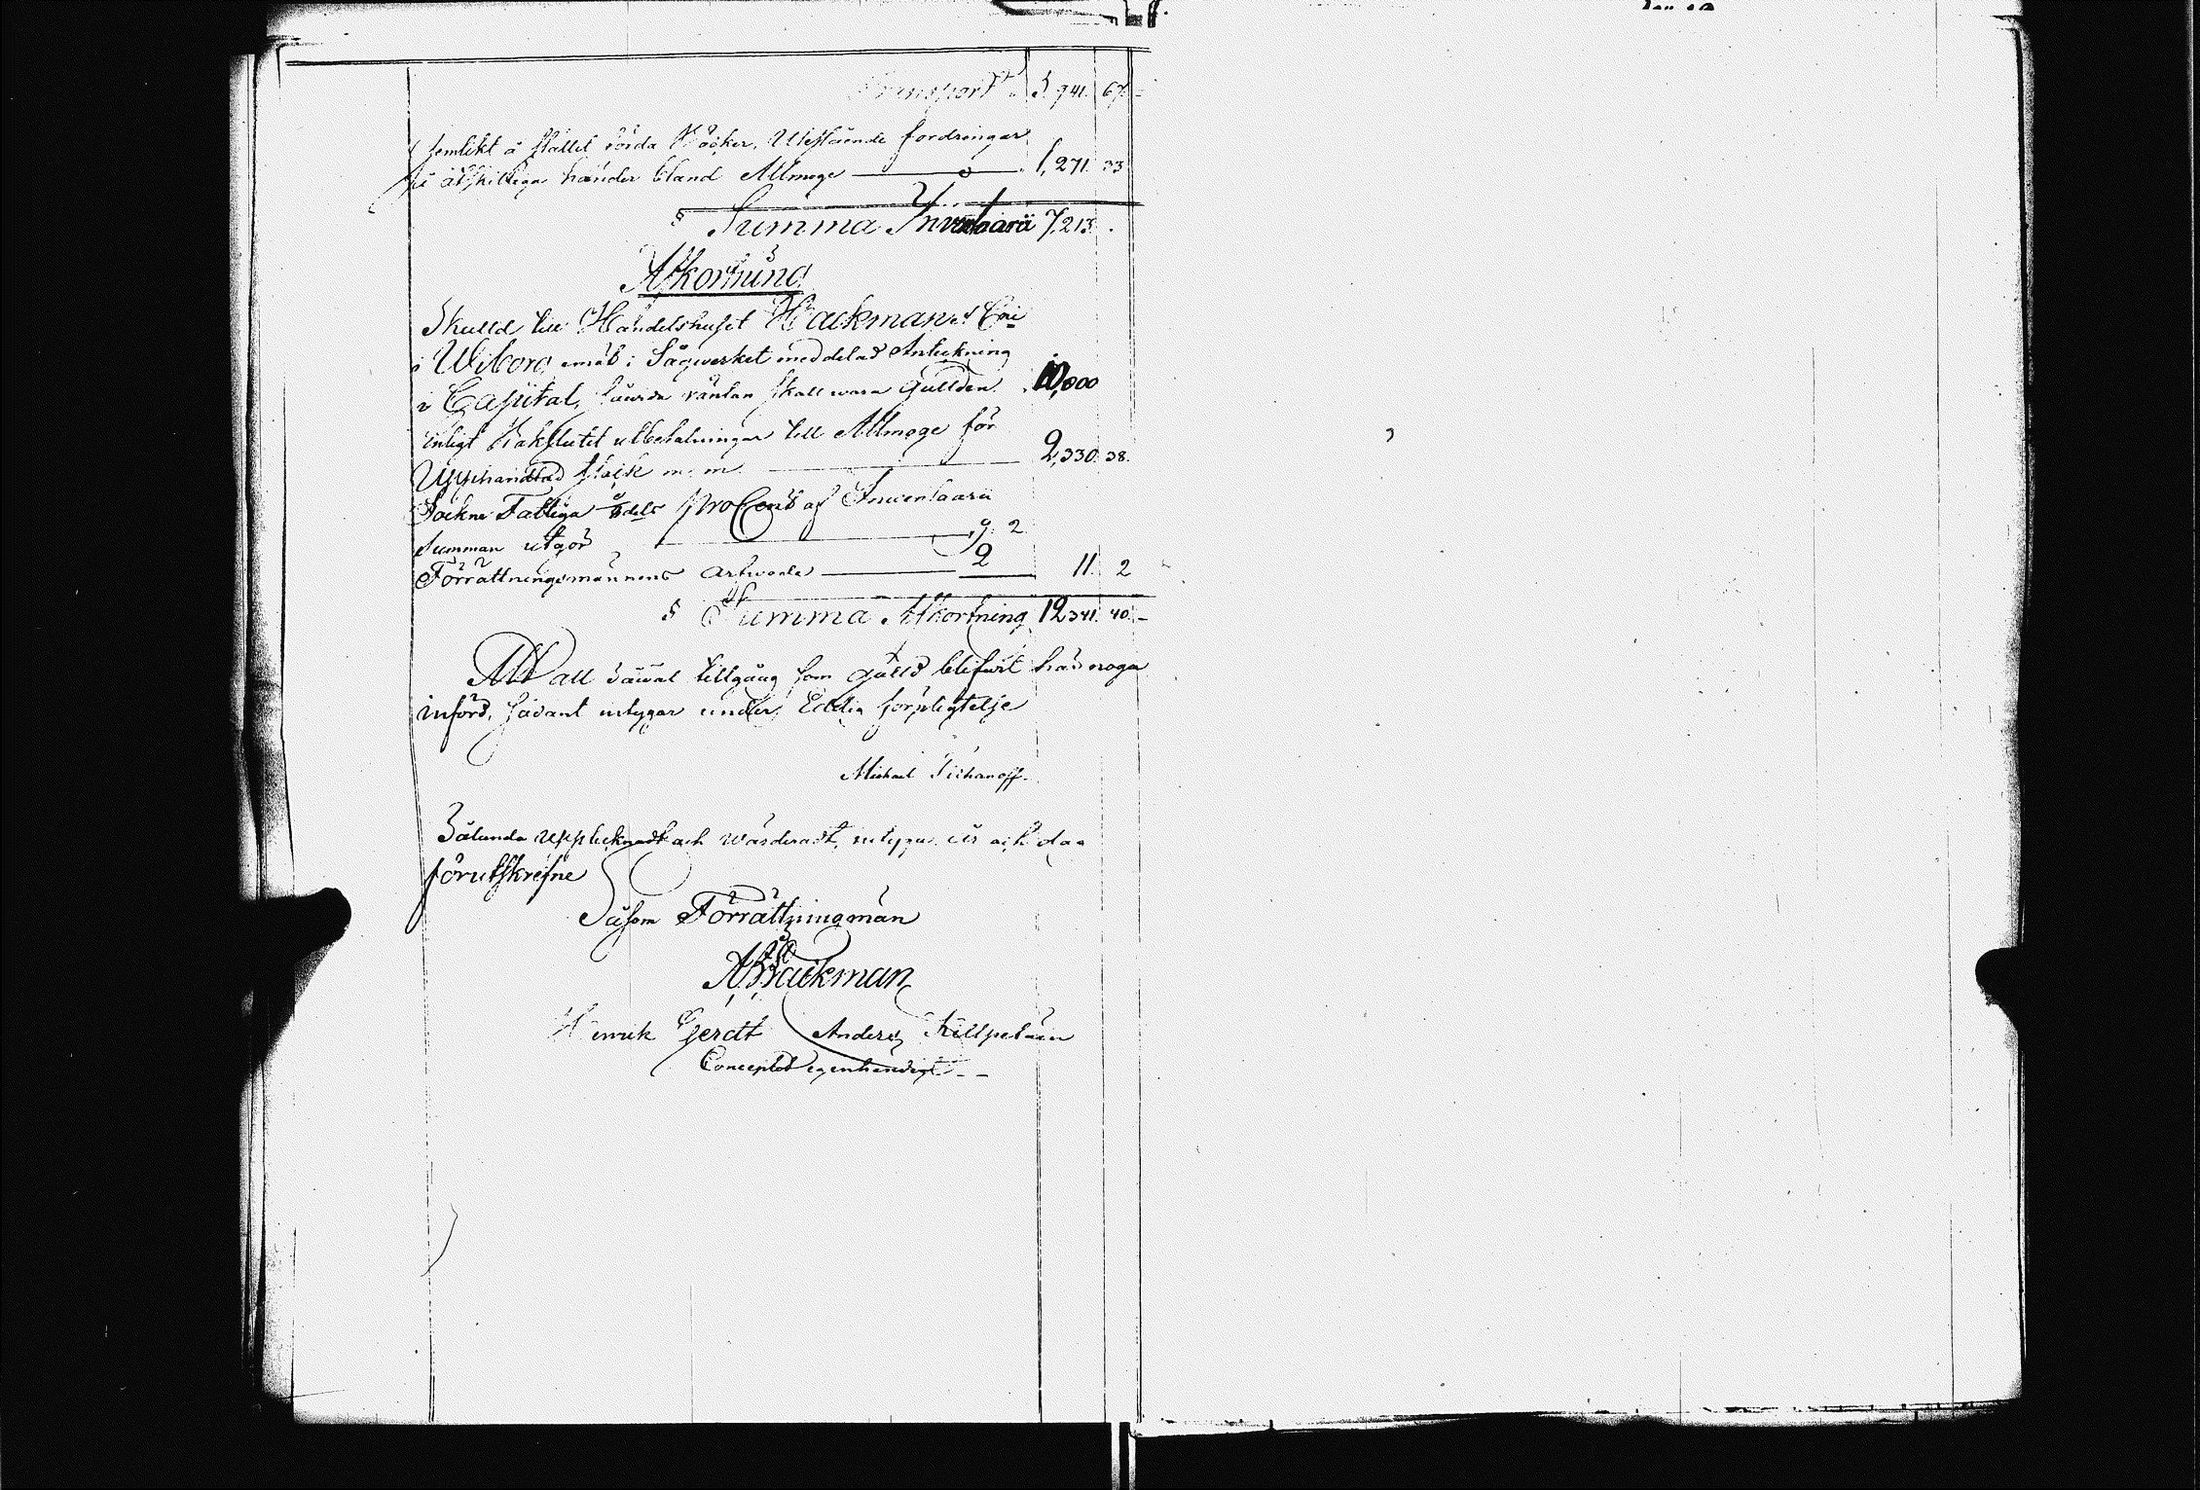 Transport 5,941. 67.
Jemlikt å stället förda Böcker, Utestående fordringar
på åtskillige händer bland Allmoge — 1,271. 33
§ Summa Inventarii 7,213.
Afkortning
Skulld till Handelshuset Hackman et Co
i Wiborg emot i Sågwerket meddelad Anteckning
i Capital, hwarå räntan skall wara gullden 10,000
enligt utbetalningar till Allmoge för
Upphandlad stock m. m. — 2,330. 38.
Sockne Fattiga ProCent af Inventarii
Summan utgör — 9. 2
Förrättningsmannens arfwode — 2 11. 2
§ Summa Afkortning 12,341. 40.
Att all såväl tillgång som gälld blifwit här noga
införd, sådant intygar under Edelig förpligtelse
Michael Tichanoff.
Sålunda upptecknadt och wärderadt, intygar år och dag
förutskrefne
Såsom Förrättningsmän
Hackman
Henrik Gerdt Anders Killpeläin
Conceptet egenhändigt